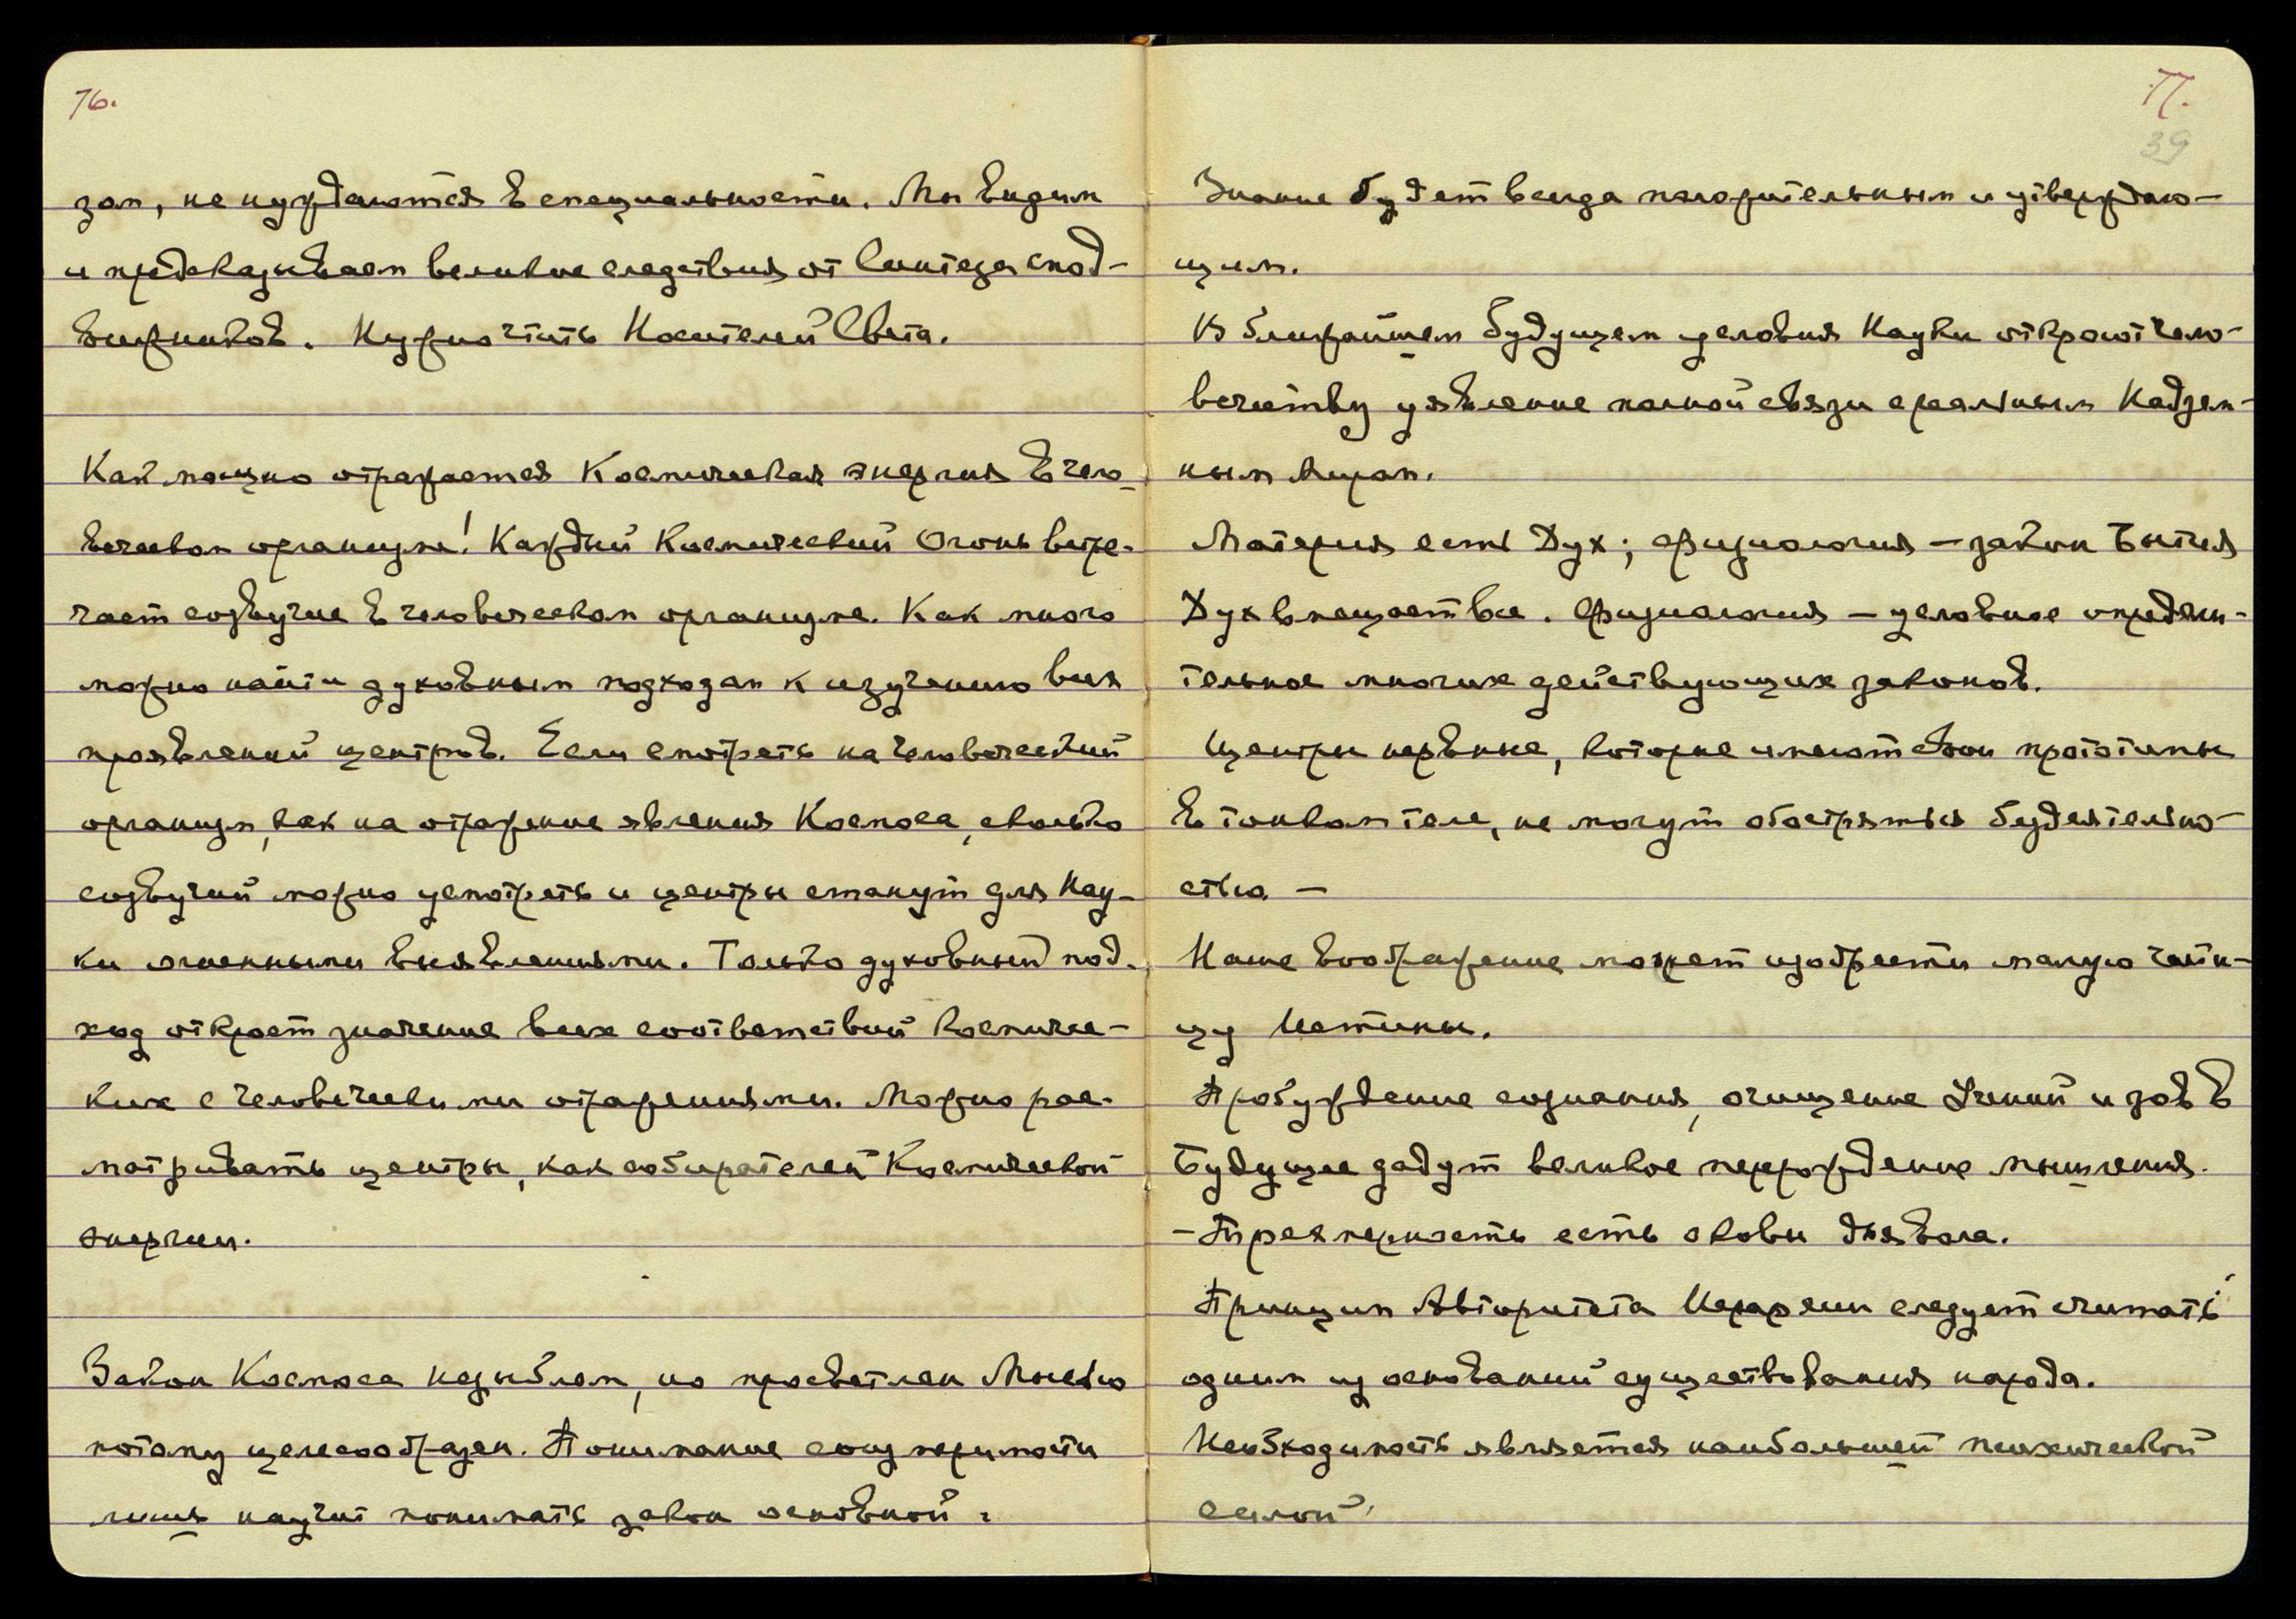 76.
зом, не нуждаются в специальности. Мы видим
и предсказываем великие следствия от Синтеза спод-
вижников. Нужно чтить Носителей Света.
Как мощно отражается Космическая энергия в чело-
веческом организме! Каждый Космический Огонь встре-
чает созвучие в человеческом организме. Как много
можно найти духовным подходом к изучению всех
проявлений центров. Если смотреть на человеческий
организм, как на отражение явления Космоса, сколько
созвучий можно усмотреть и центры станут для Нау-
ки огненными выявлениями. Только духовный под-
ход откроет значение всех соответствий Космичес-
ких с человеческими отражениями. Можно рас-
матривать центры, как собирателей Космической
энергии.
Закон Космоса незыблем, но просветлен Мыслью
потому целесообразен. Понимание соизмеримости
лишь научит понимать закон основной:
77.
39
Знание будет всегда положительным и утверждаю-
щим.
В ближайшем будущем условия Науки откроют чело-
вечеству уявление полной связи с реальным Надзем-
ным Миром.
Материя есть Дух; физиология — закон Бытия
Духа в веществе. Физиология — условное определи-
тельное многих действующих законов.
Центры нервные, которые имеют свои прототипы
в тонком теле, не могут обостряться бездеятельно-
стью —
Наше воображение может изобрести малую части-
цу Истины.
Пробуждение сознания, очищение Учений и зов в
Будущее дадут великое перерождение мышления.
-Трехмерность есть оковы дьявола.
Принцип Авторитета Иерархии следует считать
одним из оснований существования народа.
Необходимость является наибольшей психической
силой,